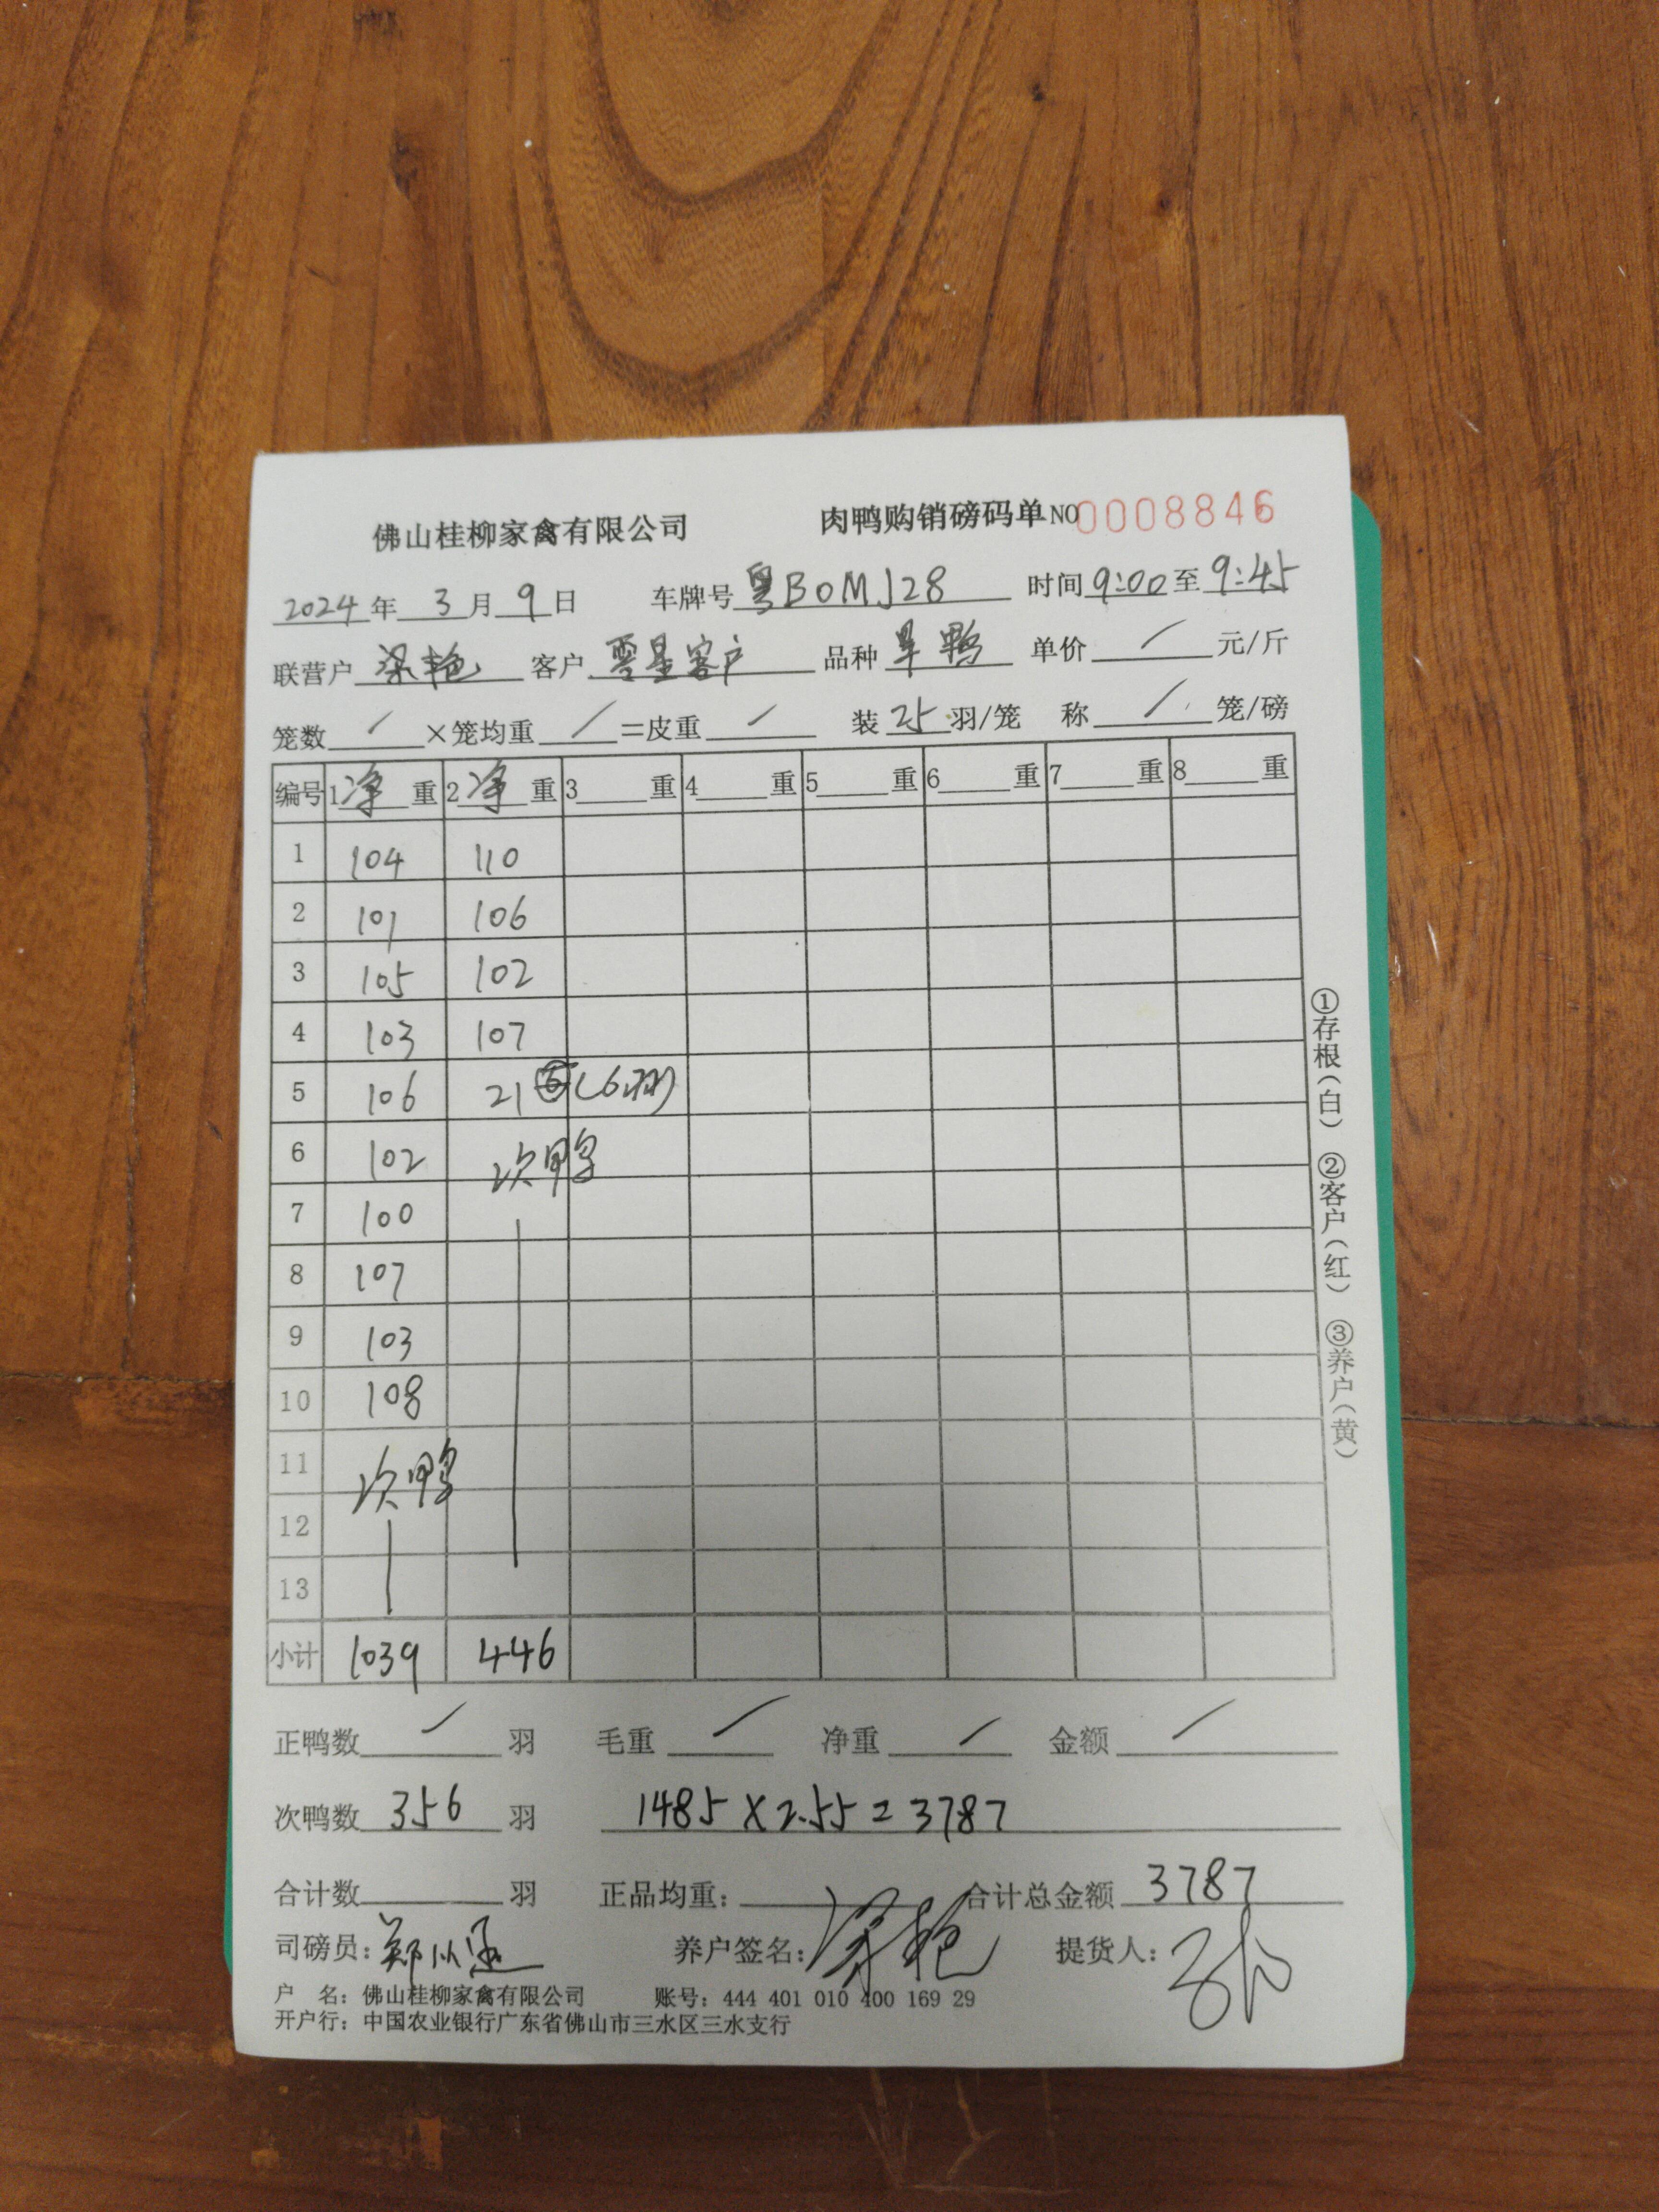 佛山桂柳家禽有限公司 肉鸭购销磅码单 NO 0008846
2024年 3月 9日 车牌号 粤B0MJ28 时间 9:00 至 9:45
联营户 梁艳 客户 零星客户 品种 旱鸭 单价 / 元/斤
笼数 / ×笼均重 / =皮重 / 装 25 羽/笼 称 / 笼/磅
编号 1净重 2净重 3 重 4 重 5 重 6 重 7 重 8 重
1 104 110
2 101 106
3 105 102
4 103 107
5 106 21 (6羽)
6 102 次鸭
7 100
8 107
9 103
10 108
11 次鸭
12
13
小计 1039 446
正鸭数 / 羽 毛重 / 净重 / 金额 /
次鸭数 356 羽 1485×2.55=3787
合计数 羽 正品均重: 合计总金额 3787
司磅员: 郑 养户签名: 梁艳 提货人:
户 名: 佛山桂柳家禽有限公司 账号: 444 401 010 400 169 29
开户行: 中国农业银行广东省佛山市三水区三水支行
①存根(白) ②客户(红) ③养户(黄)